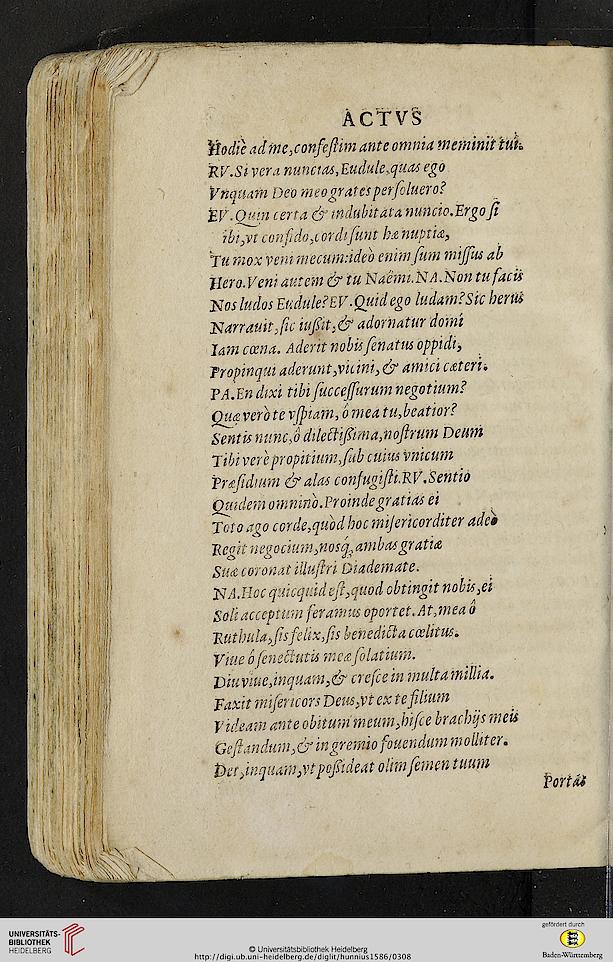 ACTVS
Hodiè ad me,confestim ante omnia meminit tui.
RV.Si vera nuncias,Eudule,quas ego
Vnquam Deo meo grates persoluero?
EV.Quin certa & indubitata nuncio.Ergo si
ibi,vt confido,cordi sunt hæ nuptiæ,
Tu mox veni mecum:ideò enim sum missus ab
Hero.Veni autem & tu Naëmi.NA.Non tu facis
Nos ludos Eudule?EV.Quid ego ludam?Sic herus
Narrauit,sic iußit,& adornatur domi
Iam cœna. Aderit nobis senatus oppidi,
Propinqui aderunt,vicini,& amici cæteri.
PA.En dixi tibi successurum negotium?
Quæ verò te vspiam, ô mea tu,beatior?
Sentis nunc,ô dilectißima,nostrum Deum
Tibi verè propitium,sub cuius vnicum
Præsidium & alas confugisti.RV.Sentio
Quidem omninò.Proinde gratias ei
Toto ago corde,quòd hoc misericorditer adeò
Regit negocium,nosq́; ambas gratiæ
Suæ coronat illustri Diademate.
NA.Hoc quicquid est,quod obtingit nobis,ei
Soli acceptum feramus oportet.At,mea ô
Ruthula,sis felix,sis benedicta cœlitus.
Viue ô senectutis meæ solatium.
Diu viue,inquam,& cresce in multa millia.
Faxit misericors Deus,vt ex te filium
Videam ante obitum meum,hisce brachijs meis
Gestandum,& in gremio fouendum molliter.
Det,inquam,vt poßideat olim semen tuum
Portas
UNIVERSITÄTS-
BIBLIOTHEK
HEIDELBERG
© Universitätsbibliothek Heidelberg
http://digi.ub.uni-heidelberg.de/diglit/hunnius1586/0308
gefördert durch
Baden-Württemberg